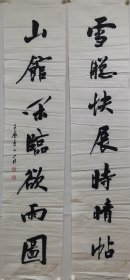 雪聡快展時晴帖
山館閒臨欲雨圖